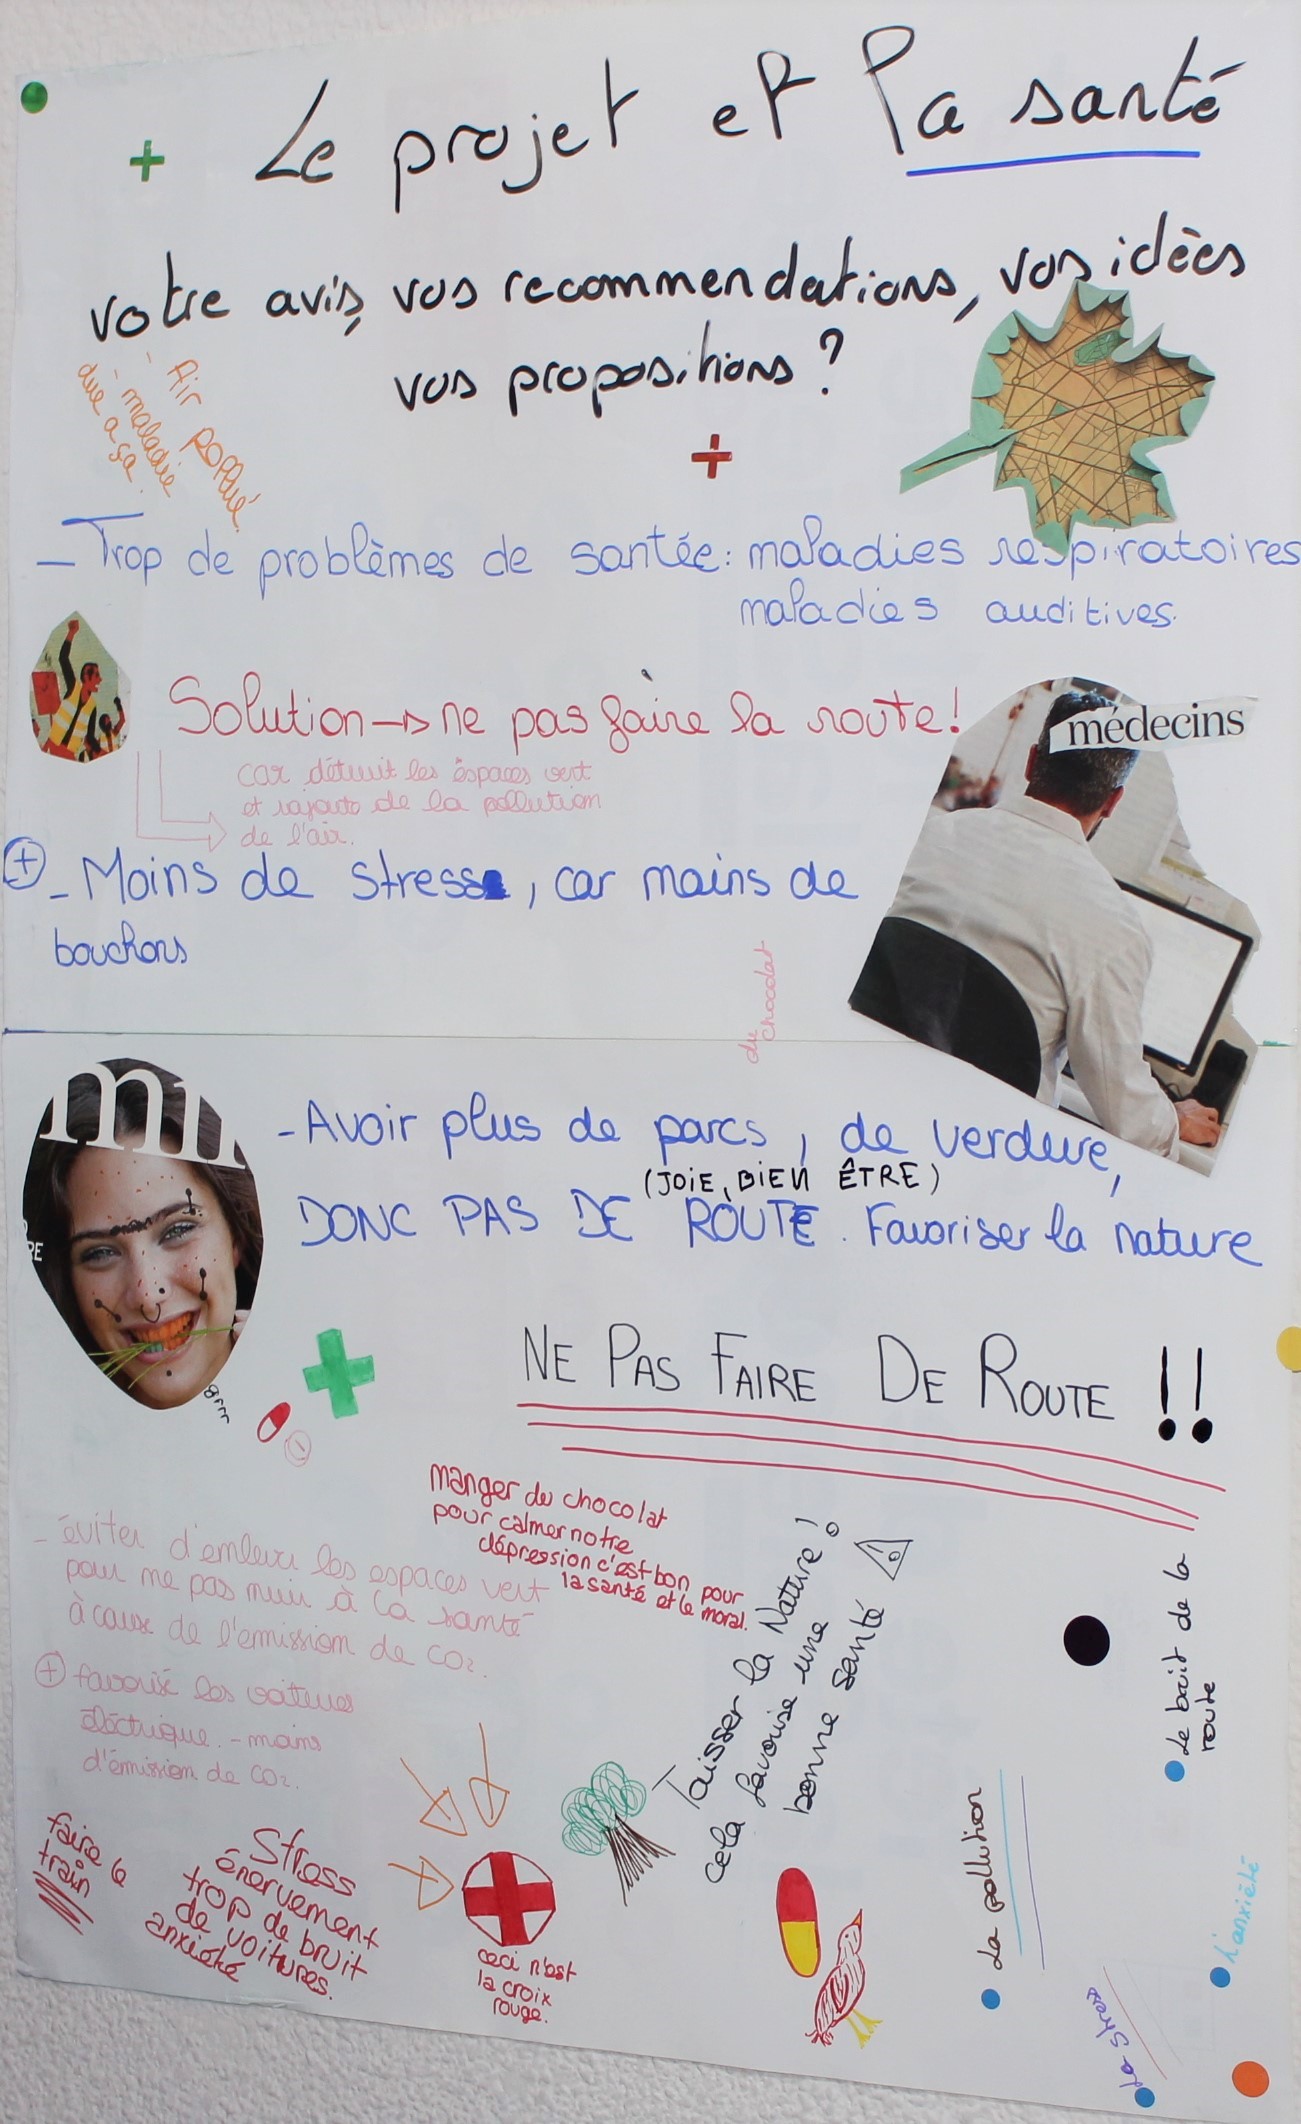 Le projet et la santé
votre avis, vos recommendations, vos idées
vos propositions ?
- Air pollué.
- maladie
due a ça.
- Trop de problèmes de santée : maladies respiratoires
maladies auditives.
Solution → ne pas faire la route !
car détruit les èspaces vert
et rajoute de la pollution
de l'air.
médecins
+ - Moins de stress, car moins de
bouchons
du
chocolat
mi
RE
- Avoir plus de parcs, de verdure,
(JOIE, BIEN ÊTRE)
DONC PAS DE ROUTE. Favoriser la nature
grrr
NE PAS FAIRE DE ROUTE !!
manger du chocolat
pour calmer notre
dépression c'est bon pour
la santé et le moral.
- éviter d'enlever les espaces vert
pour ne pas nuir à la santé
à cause de l'emission de CO2.
+ favorisé les voitures
éléctrique. - moins
d'émission de CO2.
Laisser la Nature !
cela favorise une
bonne santé
faire le
train
Stress
énervement
trop de bruit
de voitures.
anxiété
ceci n'est
la croix
rouge.
• La pollution
• Le bruit de la
route
• L'anxiété
• Le stress